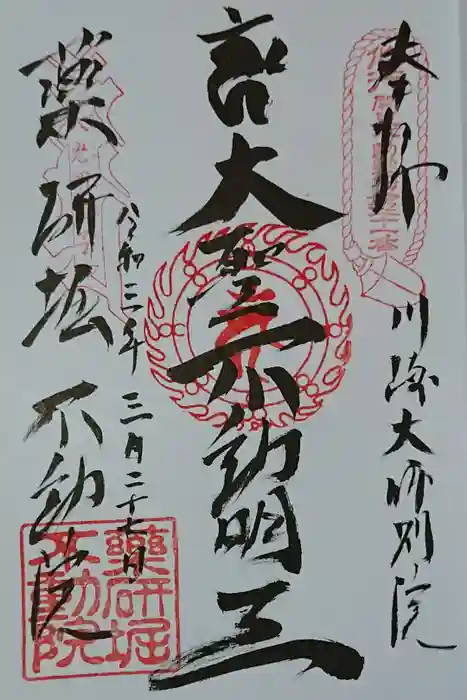 奉拝
川崎大師別院
大聖不動明王
令和三年三月二十七日
薬研堀 不動院
藥研堀
不動院